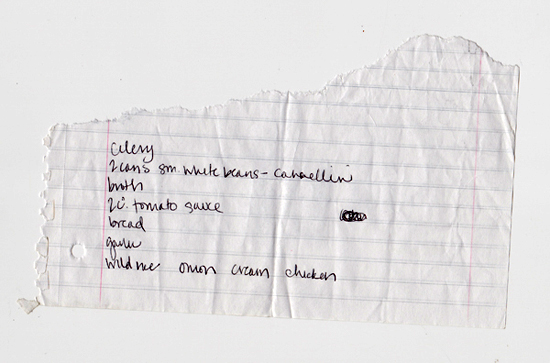 celery
2 cans sm. white beans - cannellini
broth
2 c. tomato sauce
bread
garlic
wild rice onion cream chicken